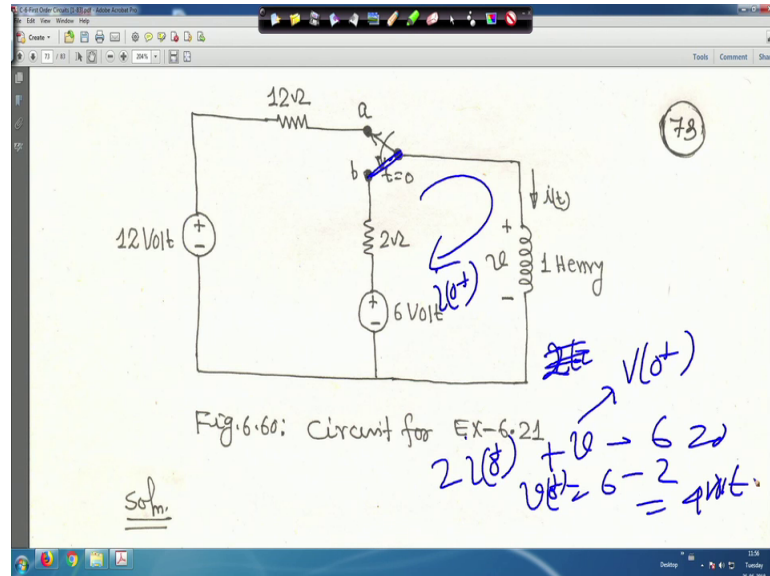 C-6-First Order Circuits (1-83).pdf - Adobe Acrobat Pro
File Edit View Window Help
Create
73 / 83
204%
Tools Comment
12Ω
a
73
b t=0
i(t)
+
12 Volt
+
-
2Ω
+
v
-
1 Henry
i(0+)
+
-
6 Volt
V(0+)
Fig. 6.60: Circuit for EX-6.21
2i(0+) + v - 6 = 0
v(0+) = 6 - 2
= 4 volt.
Soln.
11:56
Desktop
Tuesday